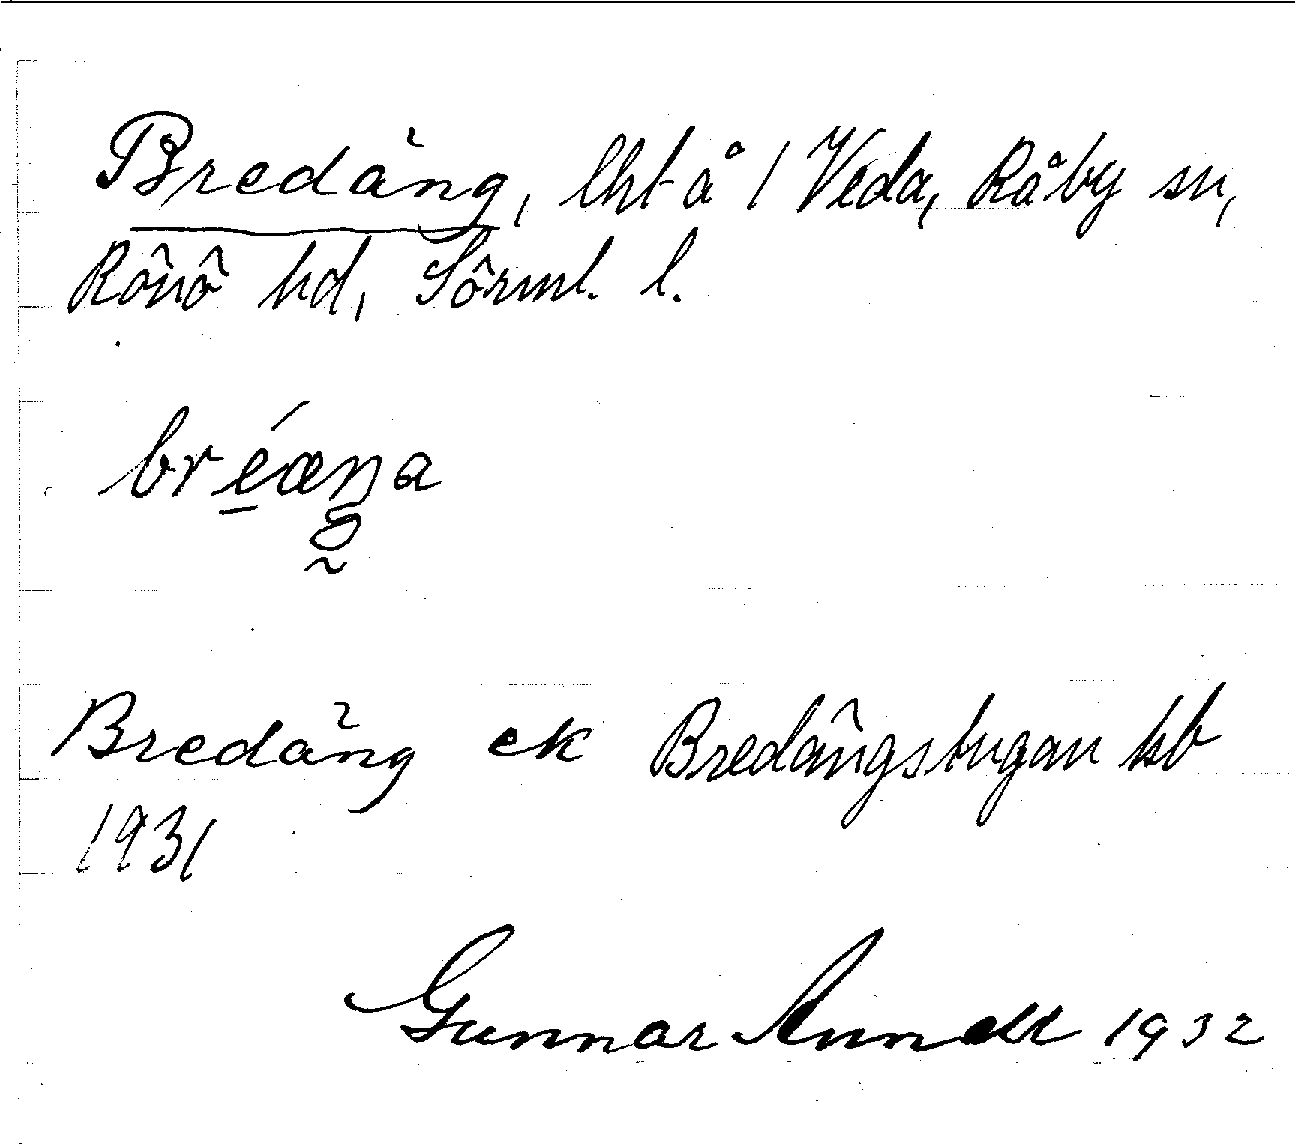 Bredäng, lht å 1 Veda, Råby sn,
Rönö hd, Sörml. l.
bréæŋa
g
~
Bredäng ek Bredängstugan kb
1931
Gunnar 1932